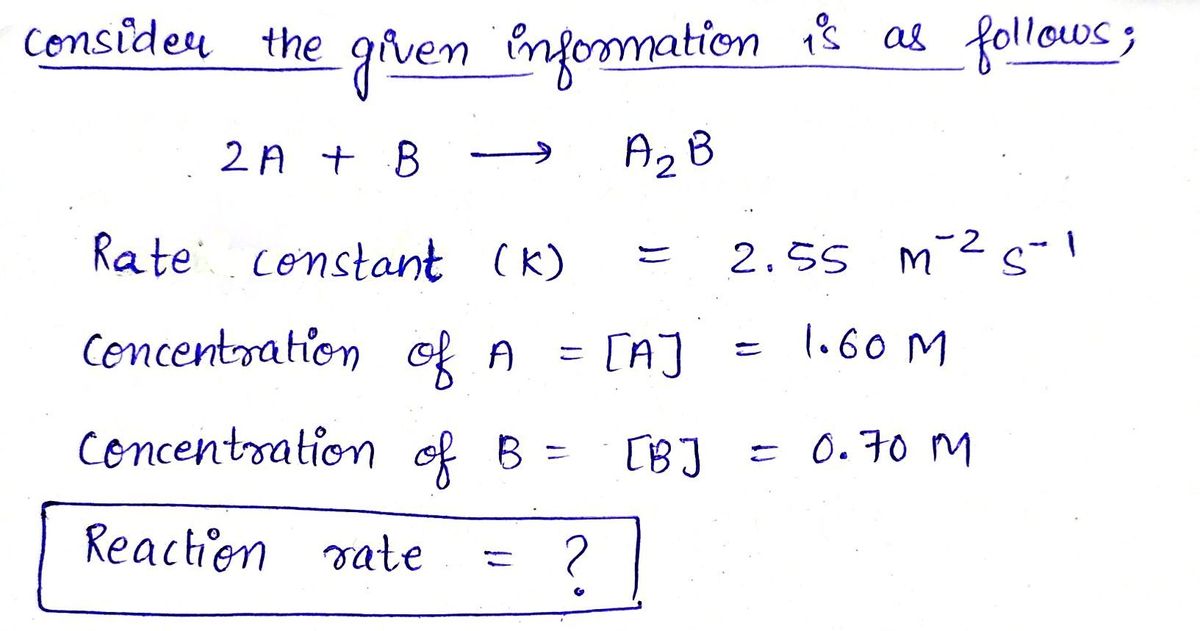 Consider the given information is as follows;
2A + B ⟶ A₂B
Rate constant (K) = 2.55 m⁻² s⁻¹
Concentration of A = [A] = 1.60 M
Concentration of B = [B] = 0.70 M
Reaction rate = ?